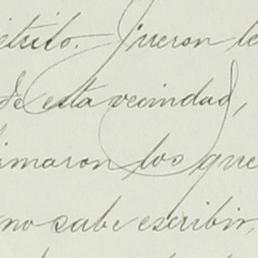 etrito. Fueron te
de esta vecindad,
firmaron los que
no sabe escribir,